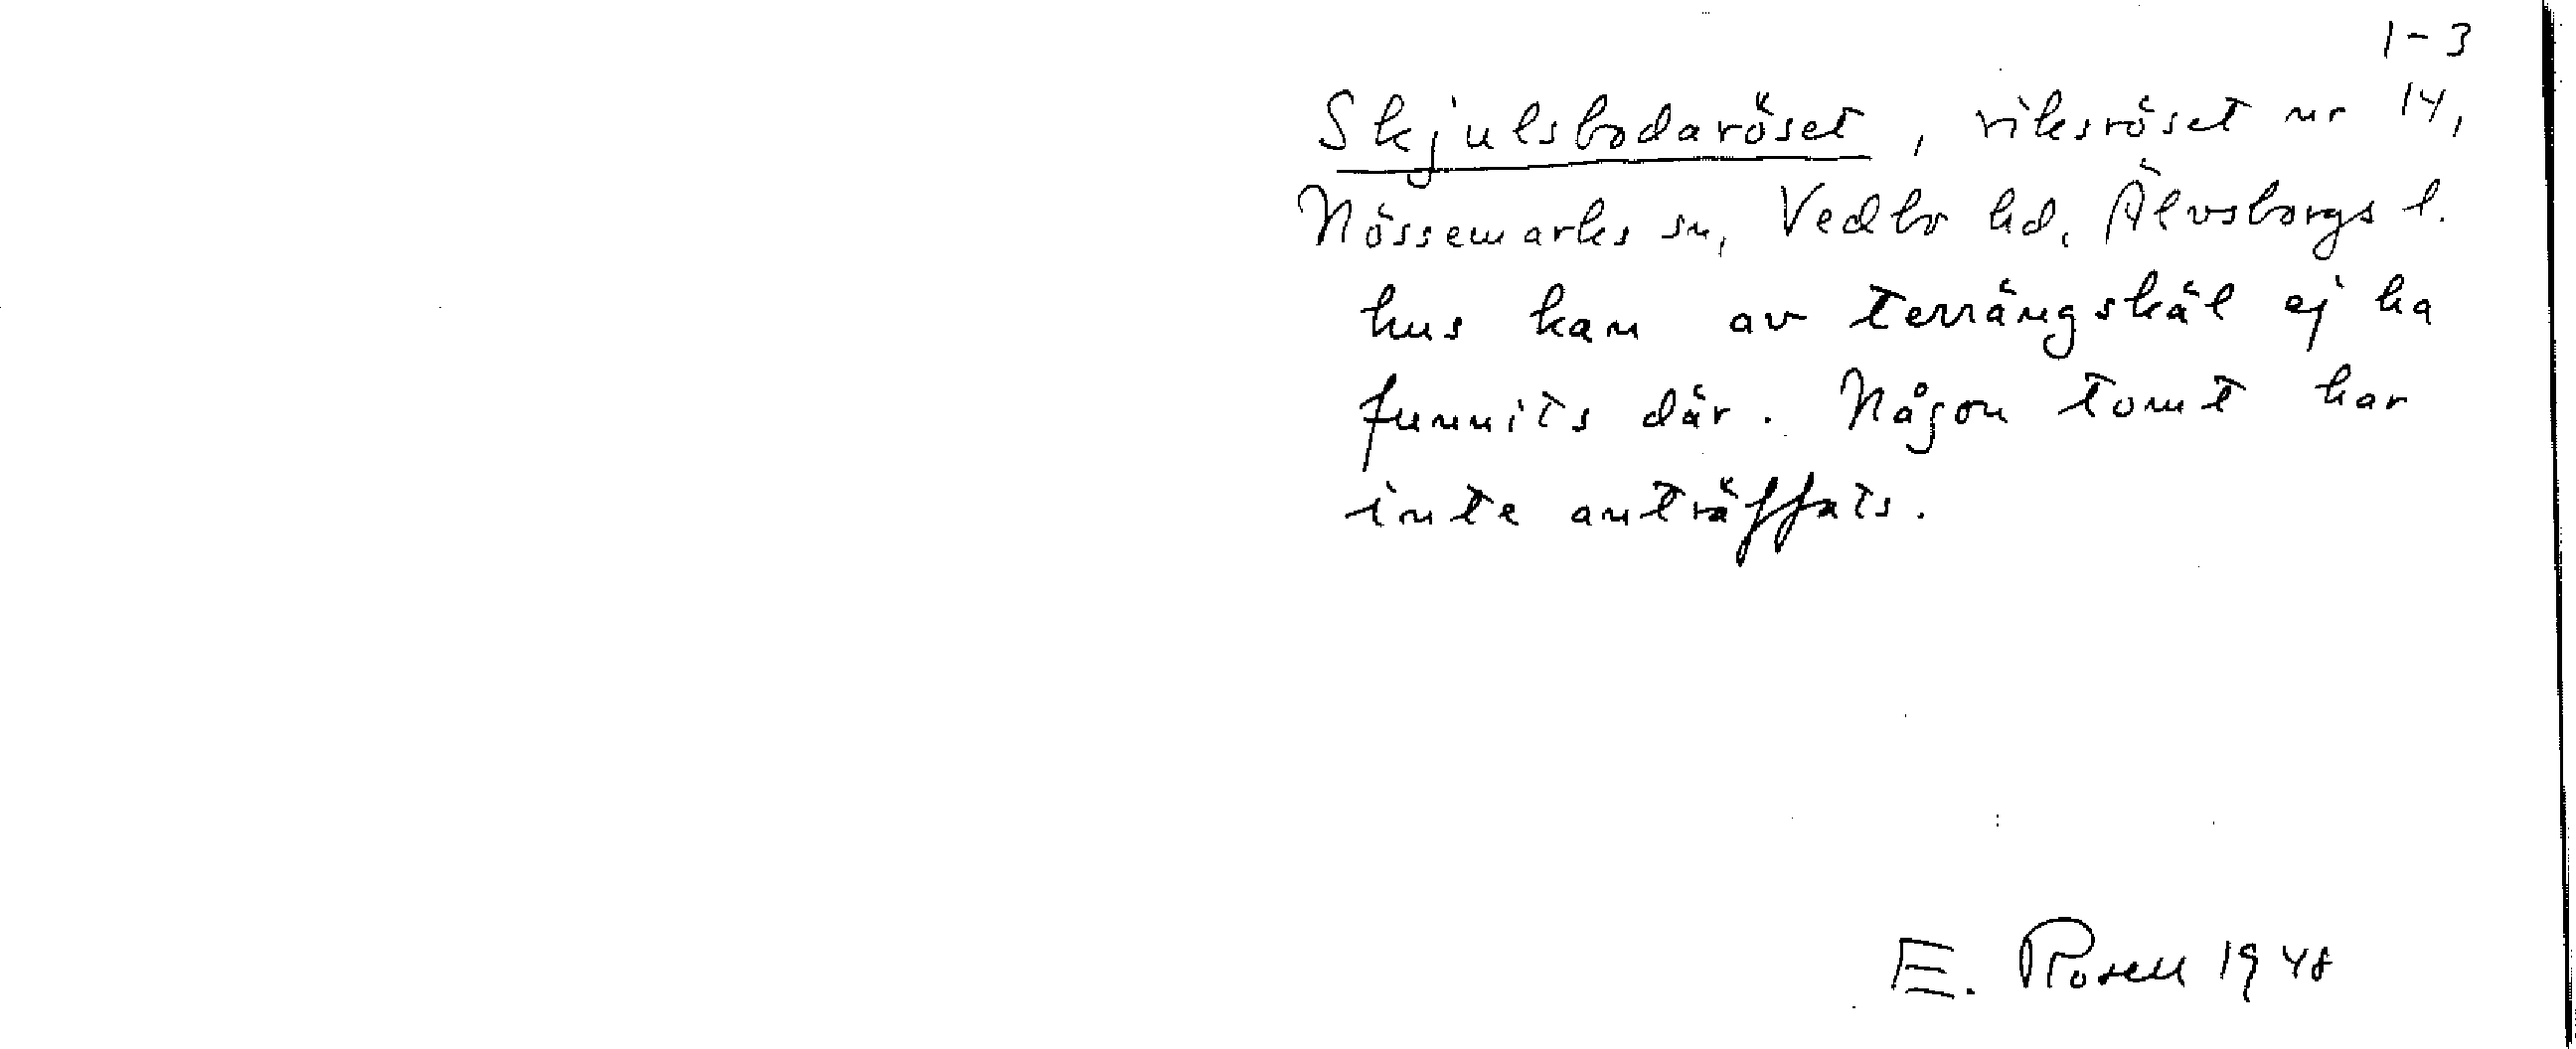 1-3
Skjulsbodaröset, riksröset nr 14,
Nössemarks sn, Vedbo hd, Älvsborgs l.
hus kan av terrängskäl ej ha
funnits där. Någon tomt har
inte anträffats.
E. Rosell 1948